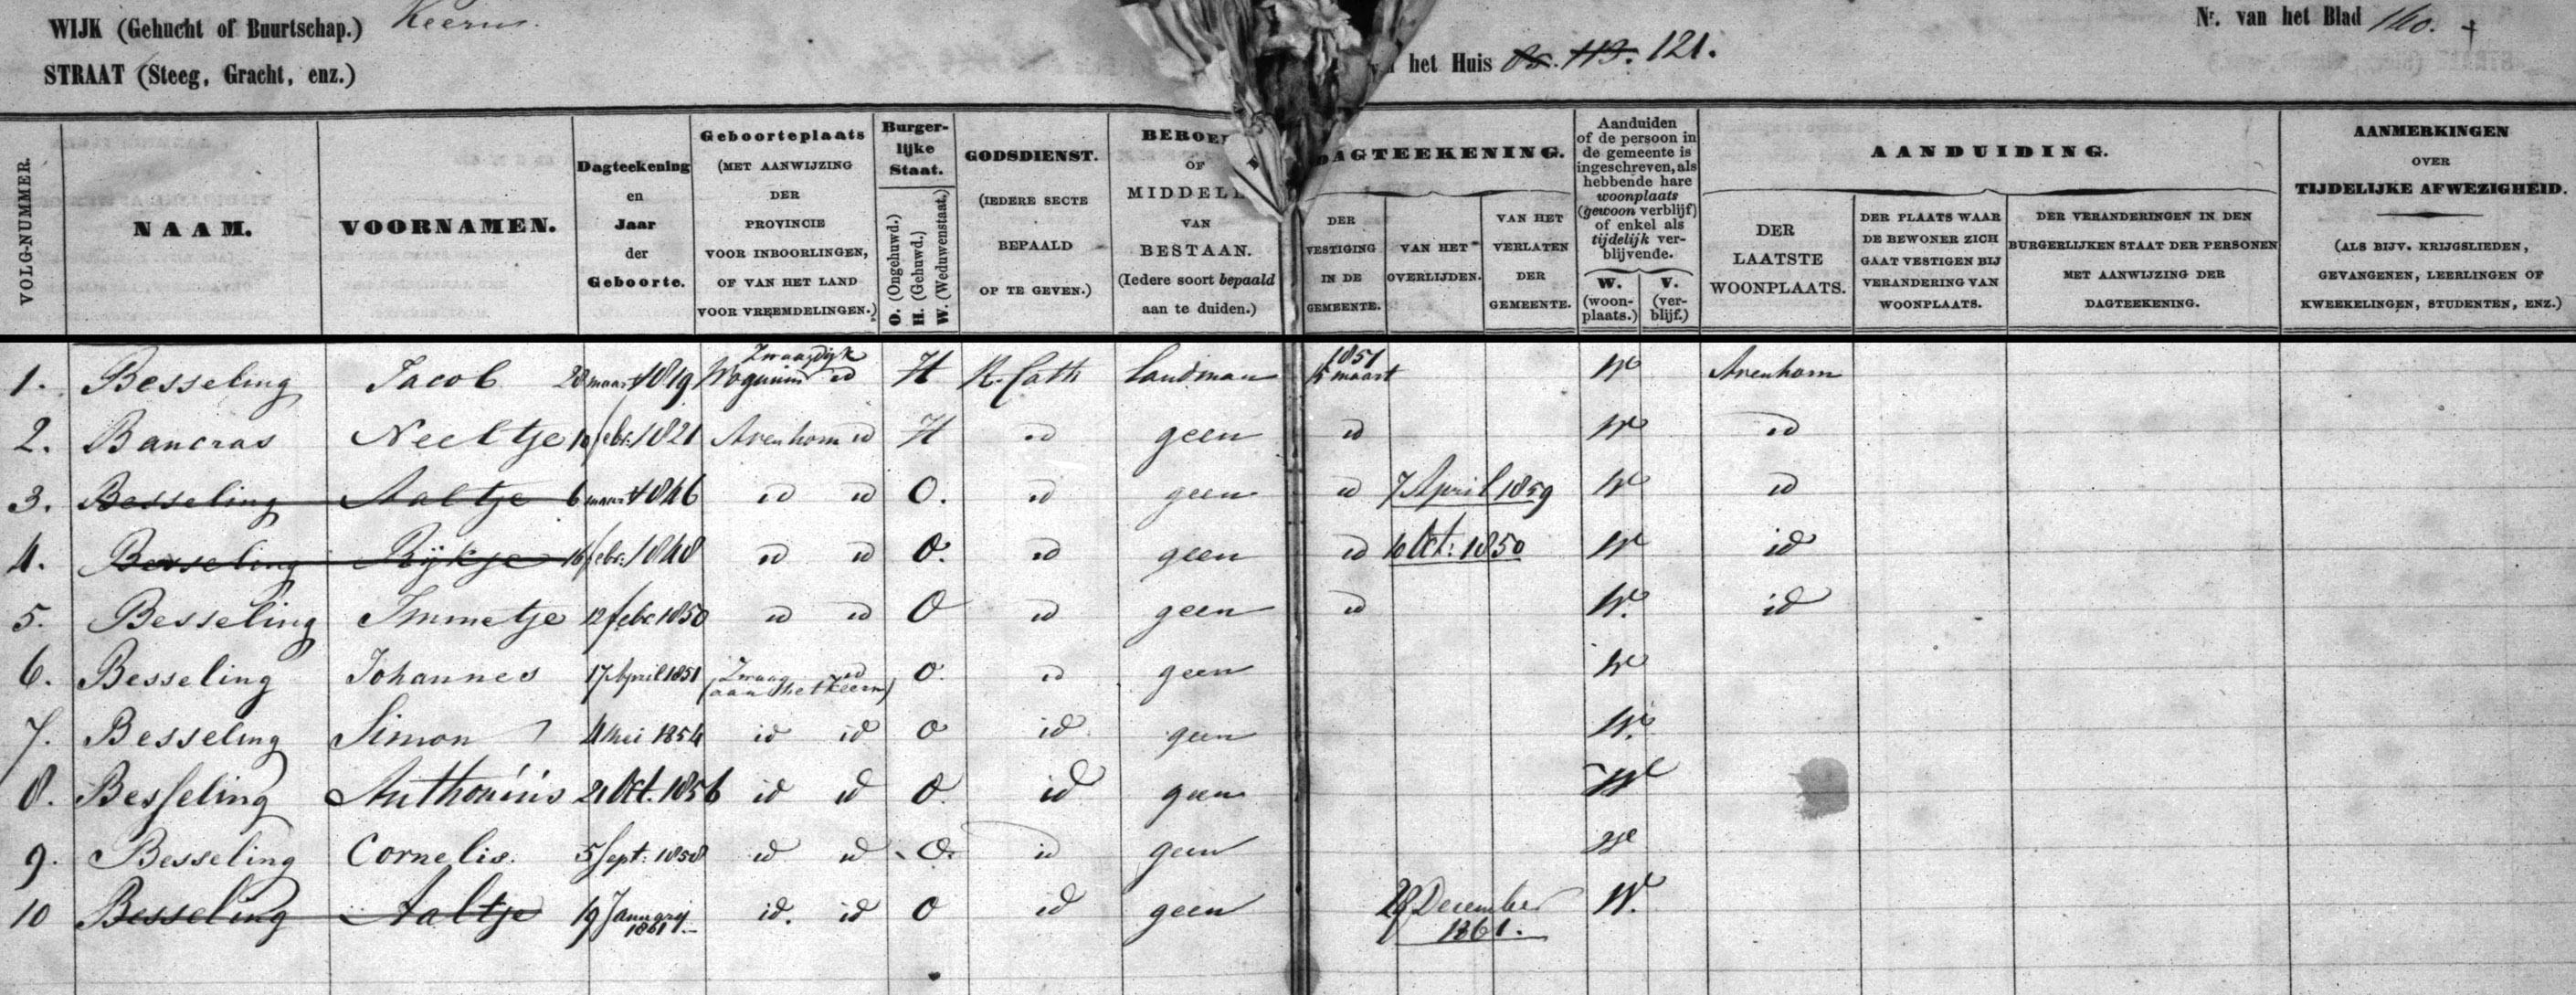 WIJK (Gehucht of Buurtschap.) Keern.
Nr. van het Blad 160.
STRAAT (Steeg, Gracht, enz.)
het Huis 113. 121.
VOLG-NUMMER.
NAAM.
VOORNAMEN.
Dagteekening
en
Jaar
der
Geboorte.
Geboorteplaats
(MET AANWIJZING
DER
PROVINCIE
VOOR INBOORLINGEN,
OF VAN HET LAND
VOOR VREEMDELINGEN.)
Burger-
lijke
Staat.
O. (Ongehuwd.)
H. (Gehuwd.)
W. (Weduwenstaat.)
GODSDIENST.
(IEDERE SECTE
BEPAALD
OP TE GEVEN.)
BEROE
OF
MIDDEL
VAN
BESTAAN.
(Iedere soort bepaald
aan te duiden.)
DAGTEEKENING.
DER
VESTIGING
IN DE
GEMEENTE.
VAN HET
OVERLIJDEN.
VAN HET
VERLATEN
DER
GEMEENTE.
Aanduiden
of de persoon in
de gemeente is
ingeschreven, als
hebbende hare
woonplaats
(gewoon verblijf)
of enkel als
tijdelijk ver-
blijvende.
W.
(woon-
plaats.)
V.
(ver-
blijf.)
AANDUIDING.
DER
LAATSTE
WOONPLAATS.
DER PLAATS WAAR
DE BEWONER ZICH
GAAT VESTIGEN BIJ
VERANDERING VAN
WOONPLAATS.
DER VERANDERINGEN IN DEN
BURGERLIJKEN STAAT DER PERSONEN
MET AANWIJZING DER
DAGTEEKENING.
AANMERKINGEN
OVER
TIJDELIJKE AFWEZIGHEID.
(ALS BIJV. KRIJGSLIEDEN,
GEVANGENEN, LEERLINGEN OF
KWEEKELINGEN, STUDENTEN, ENZ.)
Zwaagdijk 1851
1. Besseling Jacob 28 maart 1819 Wognum id H R. Cath Landman maart W Avenhorn
2. Bancras Neeltje 10 febr: 1821 Avenhorn id H id geen id W id
3. Besseling Aaltje 6 maart 1846 id id O. id geen id 7 April 1859 W id
4. Besseling Rijkje 16 febr: 1848 id id O. id geen id 16 Oct: 1850 W id
5. Besseling Immetje 12 febr 1850 id id O id geen id W. id
6. Besseling Johannes 17 April 1851 Zwaag id O. id geen W
(aan het Keern)
7. Besseling Simon 4 Mei 1854 id id O id geen W.
8. Besseling Anthonius 21 Oct. 1856 id id O. id geen W
9. Besseling Cornelis. 5 Sept: 1858 id id O. id geen W
10 Besseling Aaltje 19 Januarij id. id O id geen 29 December W.
1861 1861.